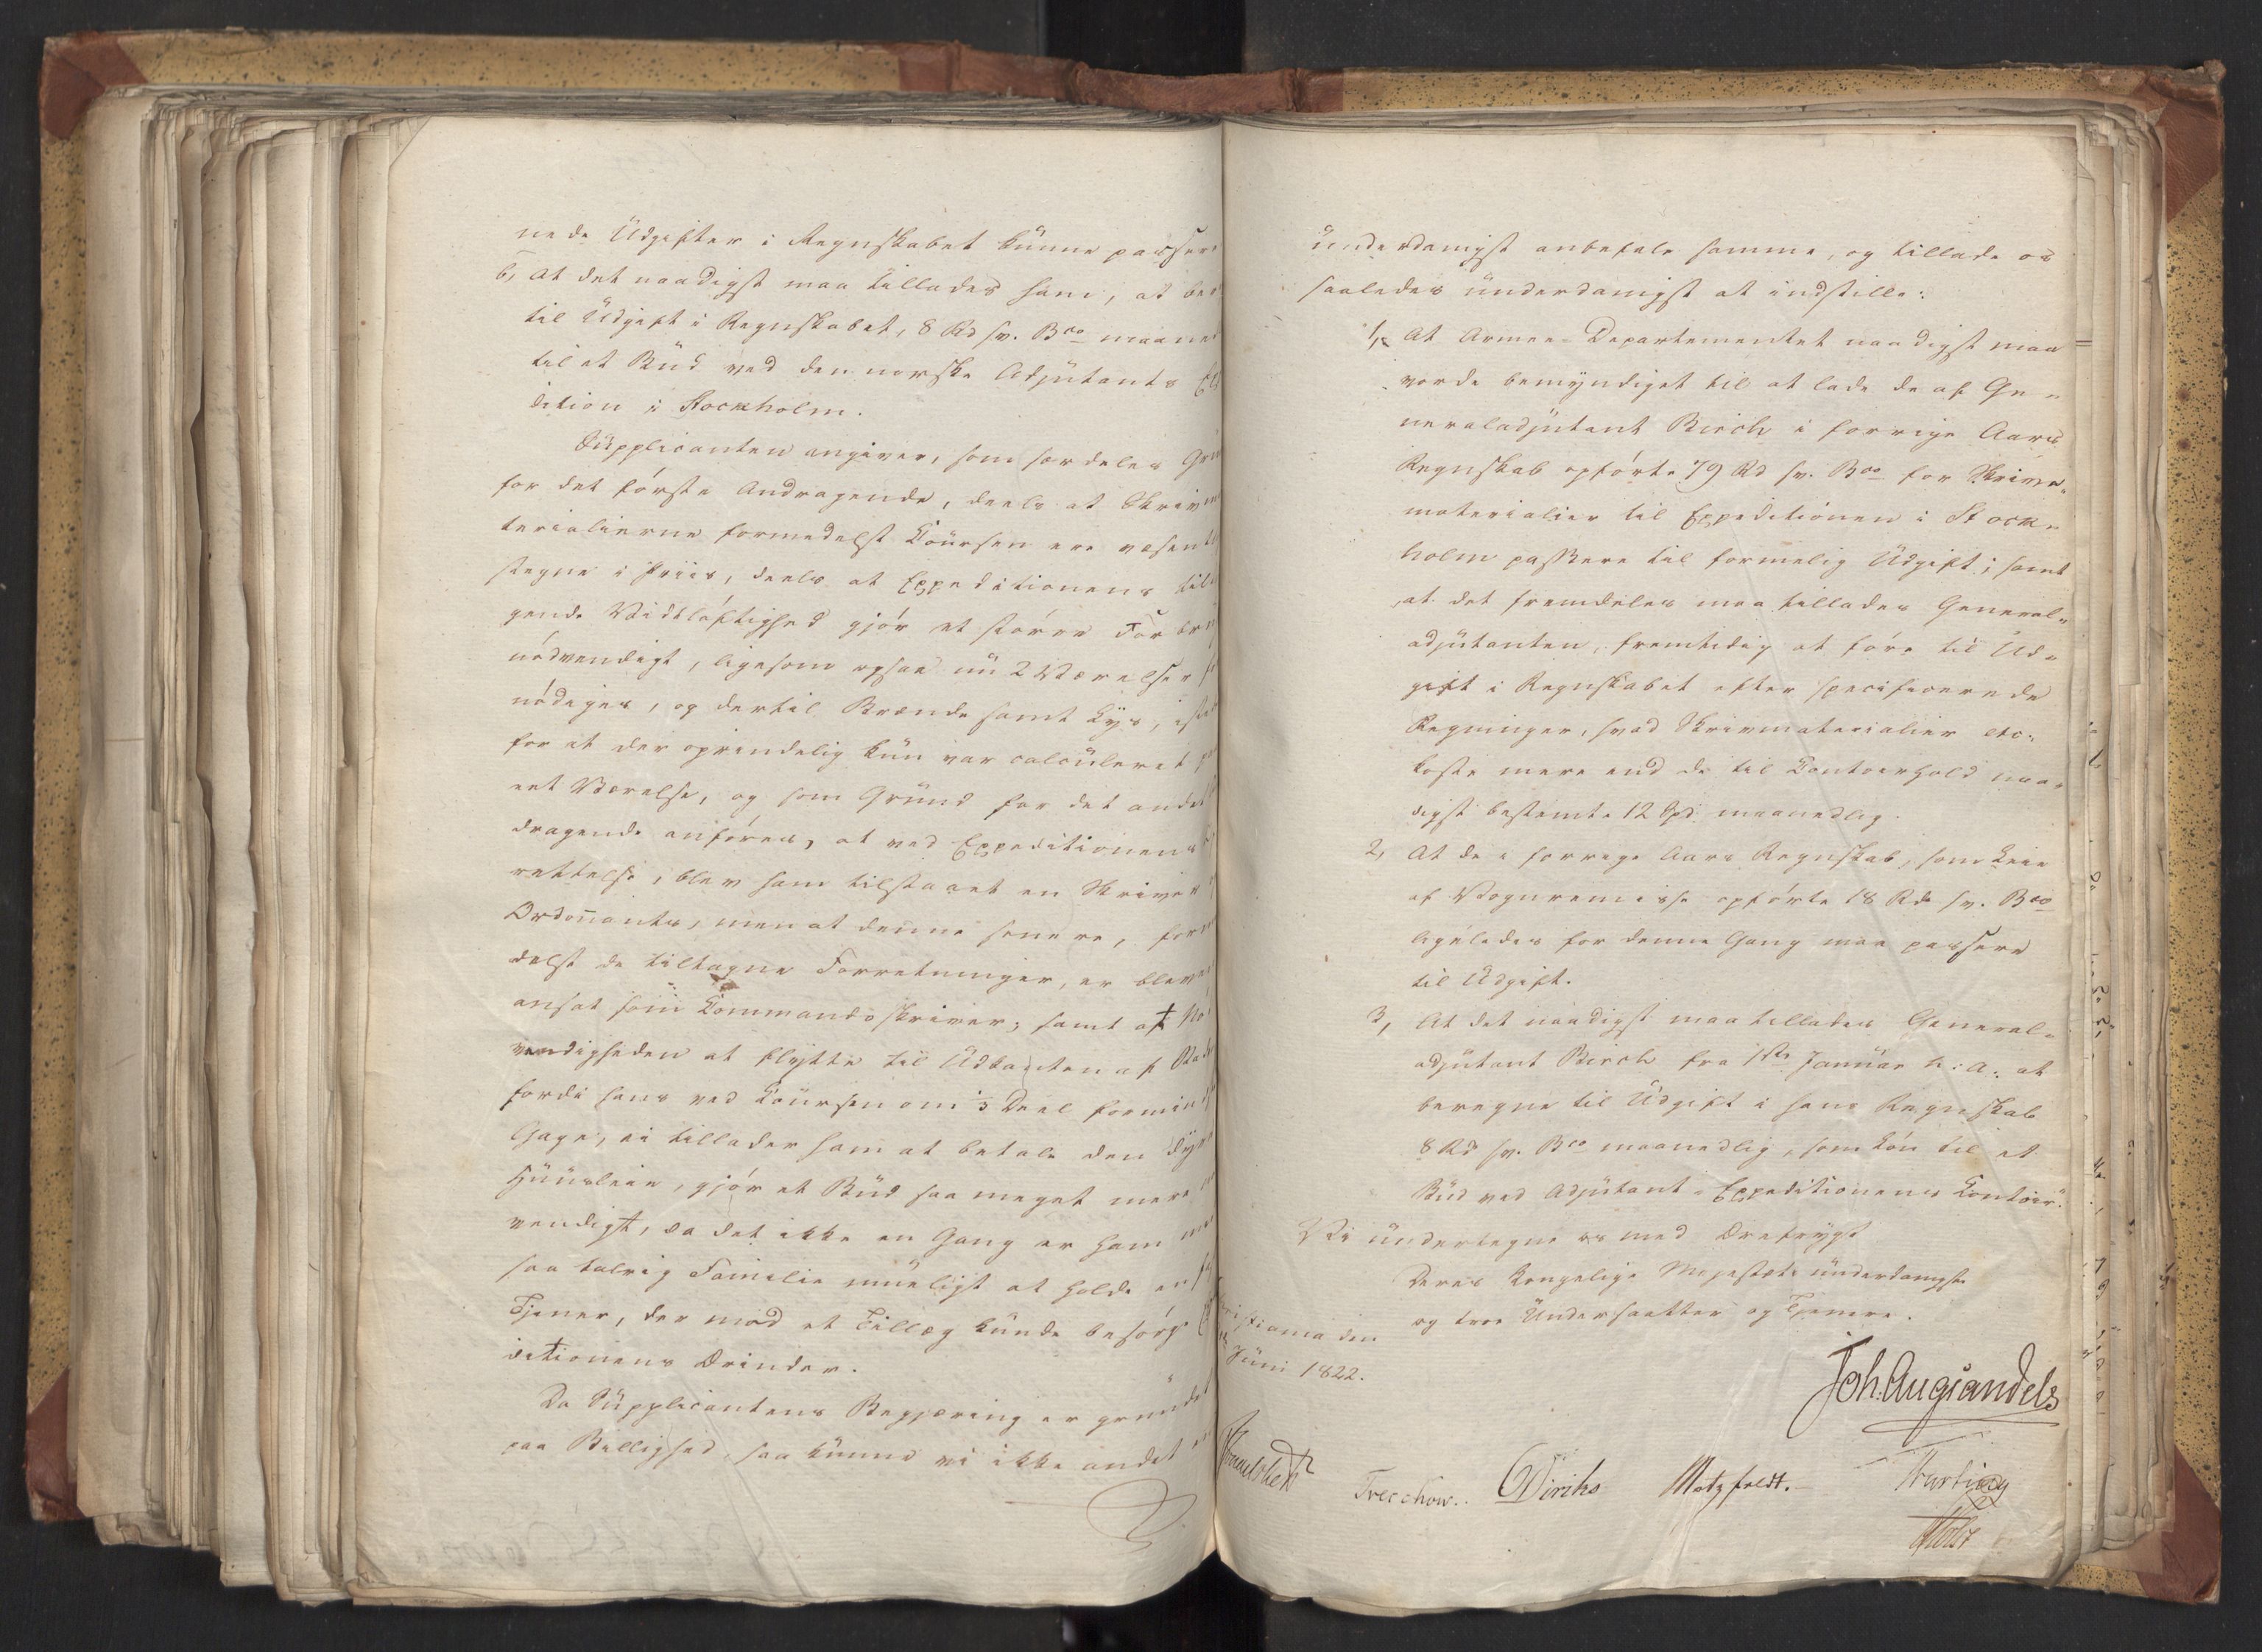 nede Udgifter i Regnskabet kunne passere
b, at det naadigst maa tillades ham, at be
til Udgift i Regnskabet, 8 Rd sv. Bco maaned
til et Bud ved den norske Adjutants Ex
dition i Stockholm.
Supplicanten angiver, som særdeles Gru
for det første Andragende, deels at Skrivm
terialierne formedelst Coursen ere væsentl
stegne i Priis, deels at Expeditionens tilt
gende Vidtløftighed gjør et større Forbru
nødvendigt, ligesom ogsaa nu 2 Værelser
nødiges, og dertil Brænde samt Lys, isted
for at der oprindelig kun var calculeret
eet Værelse, og som Grund for det andet
dragende anføres, at ved Expeditionens
rettelse, blev ham tilstaaet en Skriver
Ordonnants, men at denne senere, form
delst de tiltagne Forretninger, er bleven
ansat som Commandoskriver; samt at Nø
vendigheden at flytte til Udkanten af Stad
fordi hans ved Coursen om 1/3 Deel formind
Gage, ei tillader ham at betale den dyre
Huusleie, gjør et Bud saa meget mere
vendigt, da det ikke en Gang er ham
saa talrig Familie mueligt at holde en
Tjener, der mod et Tillæg kunde besørge
ditionens Ærinder.
Da Supplicantens Begjæring er grundet
paa Billighed, saa kunne vi ikke andet
underdanigst anbefale samme, og tillade os
saaledes underdanigst at indstille:
1, At Armee-Departementet naadigst maa
vorde bemyndiget til at lade de af Ge-
neraladjutant Birch i forrige Aars
Regnskab opførte 79 Rd sv. Bco for Skrive-
materialier til Expeditionen i Stock-
holm passere til formelig Udgift; samt
at det fremdeles maa tillades General-
adjutanten, fremtidig at føre til Ud-
gift i Regnskabet efter specificerede
Regninger, hvad Skrivmaterialier etc.
koste mere end de til Contoirhold naa-
digst bestemte 12 Spd. maanedlig.
2, At de i forrige Aars Regnskab, som Leie
af Vognremisse opførte 18 Rd sv. Bco
ligeledes for denne Gang maa passere
til Udgift.
3, At det naadigst maa tillades General-
adjutant Birch fra 1ste Januar h: a: at
beregne til Udgift i hans Regnskab
8 Rd sv. Bco maanedlig, som Løn til et
Bud ved Adjutant-Expeditionens Contoir."
Vi undertegne os med Ærefrygt
Deres Kongelige Majestæts underdanigste
og troe Undersaatter og Tjenere.
istiania den
Juni 1822.
Joh. Aug: Sandels
Sommerhielm
Treschow. Diriks Motzfeldt. Krefting
Holst